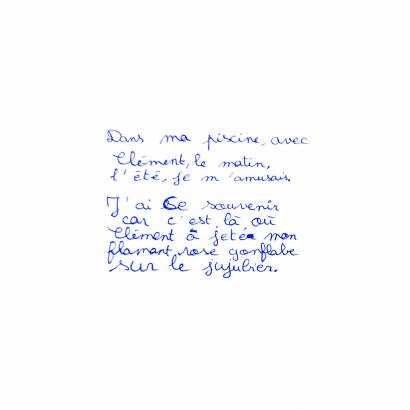 Dans ma piscine, avec
Clément, le matin,
l'été, je m'amusais.
J'ai ce souvenir
car c'est là où
Clément à jeté mon
flamant rose gonflabe
sur le jujubier.